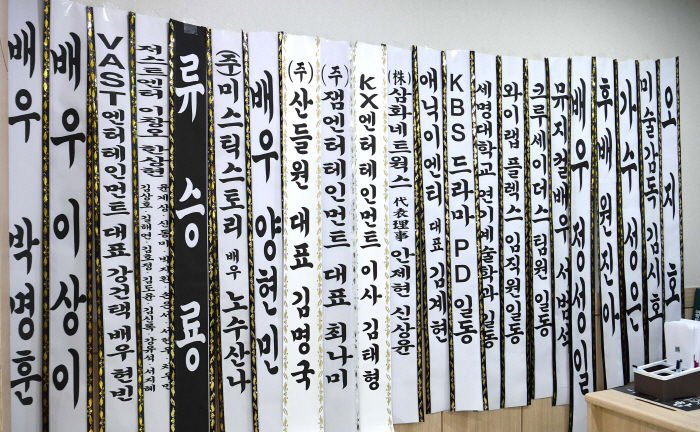 배우 박명훈
배우 이상이
VAST엔터테인먼트 대표 강건택 배우 현빈
저스트엔터 이창오 한상현
류승룡
(주)미스틱스토리 배우 노수산나
배우 양현민
(주)산들원 대표 김명국
(주)잼엔터테인먼트 대표 최나미
KX엔터테인먼트 이사 김태형
(株)삼화네트웍스 代表理事 안제현 신상윤
애닉이엔티 대표 김계현
KBS 드라마 PD 일동
세명대학교 연기예술학과 일동
와이랩 플렉스 임직원일동
크루세이더스팀원 일동
뮤지컬배우 서범석
배우 정성일
후배 원진아
가수 성은
미술감독 김시호
오지호